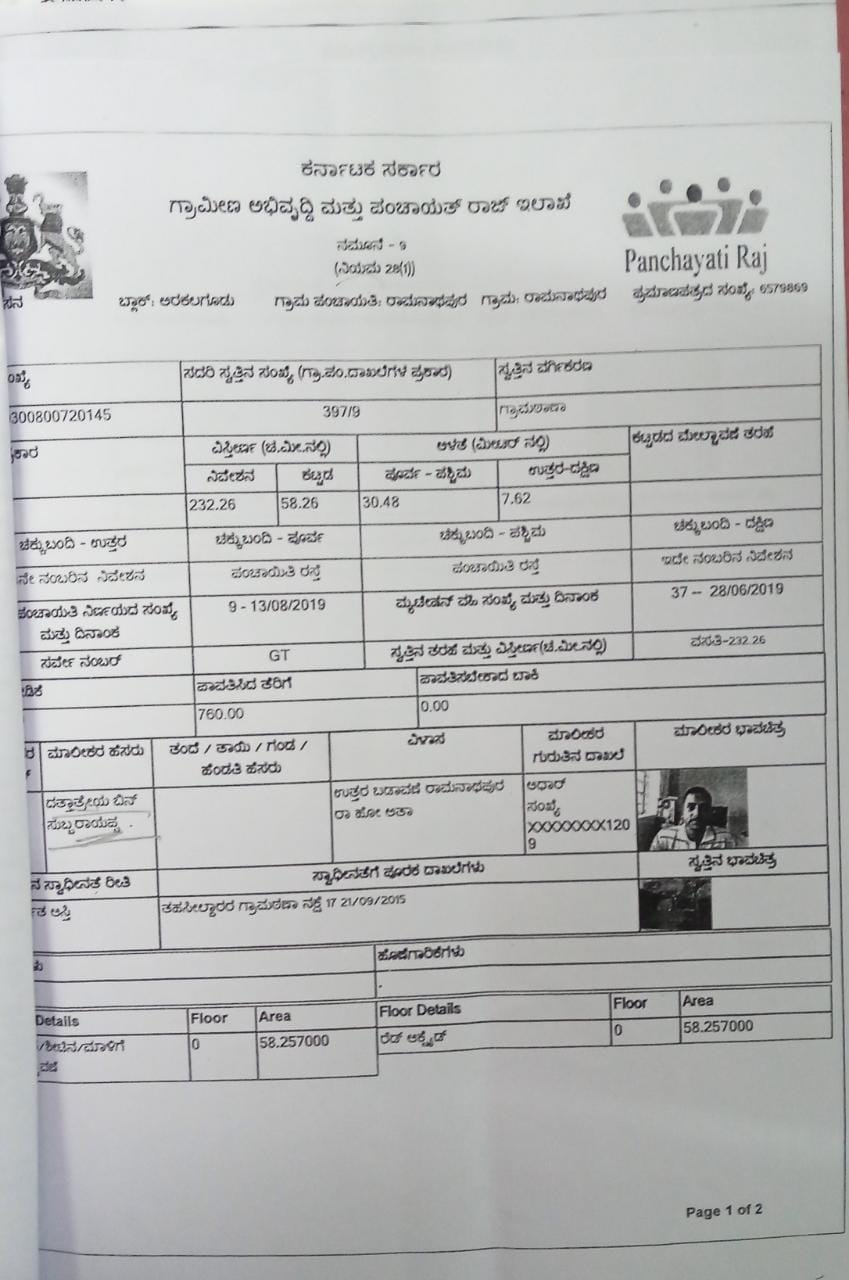 ಕರ್ನಾಟಕ ಸರ್ಕಾರ
ಗ್ರಾಮೀಣ ಅಭಿವೃದ್ಧಿ ಮತ್ತು ಪಂಚಾಯತ್ ರಾಜ್ ಇಲಾಖೆ
ನಮೂನೆ - 9
(ನಿಯಮ 28(1))
Panchayati Raj
ಸನ ಬ್ಲಾಕ್: ಅರಕಲಗೂಡು ಗ್ರಾಮ ಪಂಚಾಯತಿ: ರಾಮನಾಥಪುರ ಗ್ರಾಮ: ರಾಮನಾಥಪುರ ಪ್ರಮಾಣಪತ್ರದ ಸಂಖ್ಯೆ: 6579869
ಂಖ್ಯೆ ಸದರಿ ಸ್ವತ್ತಿನ ಸಂಖ್ಯೆ (ಗ್ರಾ.ಪಂ.ದಾಖಲೆಗಳ ಪ್ರಕಾರ) ಸ್ವತ್ತಿನ ವರ್ಗೀಕರಣ
300800720145 397/9 ಗ್ರಾಮಠಾಣಾ
ಕಾರ ವಿಸ್ತೀರ್ಣ (ಚ.ಮೀ.ನಲ್ಲಿ) ಅಳತೆ (ಮೀಟರ್ ನಲ್ಲಿ) ಕಟ್ಟಡದ ಮೇಲ್ಚಾವಣಿ ತರಹೆ
ನಿವೇಶನ ಕಟ್ಟಡ ಪೂರ್ವ - ಪಶ್ಚಿಮ ಉತ್ತರ-ದಕ್ಷಿಣ
232.26 58.26 30.48 7.62
ಚಕ್ಕುಬಂದಿ - ಉತ್ತರ ಚಕ್ಕುಬಂದಿ - ಪೂರ್ವ ಚಕ್ಕುಬಂದಿ - ಪಶ್ಚಿಮ ಚಕ್ಕುಬಂದಿ - ದಕ್ಷಿಣ
ನೇ ನಂಬರಿನ ನಿವೇಶನ ಪಂಚಾಯಿತಿ ರಸ್ತೆ ಪಂಚಾಯಿತಿ ರಸ್ತೆ ಇದೇ ನಂಬರಿನ ನಿವೇಶನ
ಪಂಚಾಯತಿ ನಿರ್ಣಯದ ಸಂಖ್ಯೆ 9 - 13/08/2019 ಮ್ಯುಟೇಷನ್ ವಹಿ ಸಂಖ್ಯೆ ಮತ್ತು ದಿನಾಂಕ 37 -- 28/06/2019
ಮತ್ತು ದಿನಾಂಕ
ಸರ್ವೇ ನಂಬರ್ GT ಸ್ವತ್ತಿನ ತರಹೆ ಮತ್ತು ವಿಸ್ತೀರ್ಣ(ಚ.ಮೀ.ನಲ್ಲಿ) ವಸತಿ-232.26
ಪಾವತಿಸಿದ ತೆರಿಗೆ ಪಾವತಿಸಬೇಕಾದ ಬಾಕಿ
760.00 0.00
ಮಾಲೀಕರ ಹೆಸರು ತಂದೆ / ತಾಯಿ / ಗಂಡ / ವಿಳಾಸ ಮಾಲೀಕರ ಮಾಲೀಕರ ಭಾವಚಿತ್ರ
ಹೆಂಡತಿ ಹೆಸರು ಗುರುತಿನ ದಾಖಲೆ
ದತ್ತಾತ್ರೇಯ ಬಿನ್ ಉತ್ತರ ಬಡಾವಣೆ ರಾಮನಾಥಪುರ ಆಧಾರ್
ಸುಬ್ಬರಾಯಪ್ಪ . ರಾ ಹೋ ಅತಾ ಸಂಖ್ಯೆ
XXXXXXXX120
9
ನ ಸ್ವಾಧೀನತೆ ರೀತಿ ಸ್ವಾಧೀನತೆಗೆ ಪೂರಕ ದಾಖಲೆಗಳು ಸ್ವತ್ತಿನ ಭಾವಚಿತ್ರ
ಆಸ್ತಿ ತಹಸೀಲ್ದಾರರ ಗ್ರಾಮಠಣಾ ನಕ್ಷೆ 17 21/09/2015
ಹೊಣೆಗಾರಿಕೆಗಳು
.
Details Floor Area Floor Details Floor Area
/ಶೀಟಿನ/ಮಾಳಿಗೆ 0 58.257000 ರೆಡ್ ಆಕ್ಸೈಡ್ 0 58.257000
Page 1 of 2